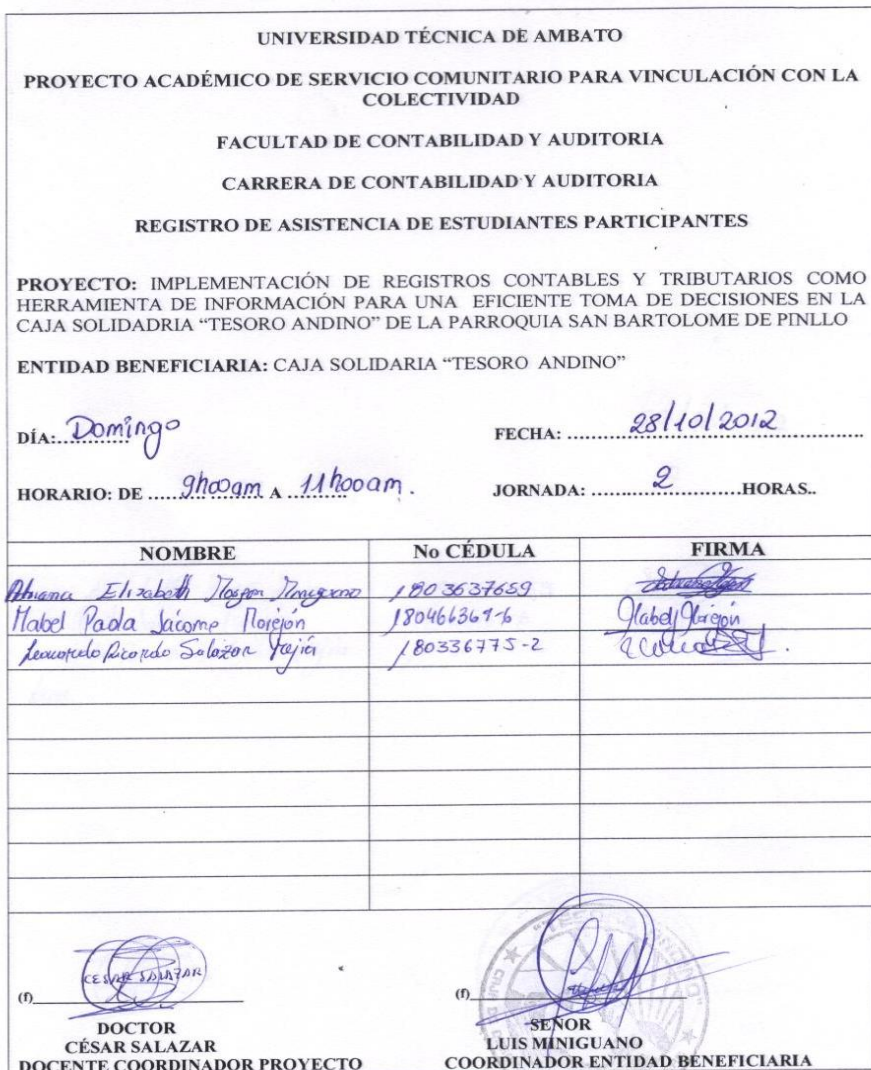 UNIVERSIDAD TÉCNICA DE AMBATO
PROYECTO ACADÉMICO DE SERVICIO COMUNITARIO PARA VINCULACIÓN CON LA
COLECTIVIDAD
FACULTAD DE CONTABILIDAD Y AUDITORIA
CARRERA DE CONTABILIDAD Y AUDITORIA
REGISTRO DE ASISTENCIA DE ESTUDIANTES PARTICIPANTES
PROYECTO: IMPLEMENTACIÓN DE REGISTROS CONTABLES Y TRIBUTARIOS COMO
HERRAMIENTA DE INFORMACIÓN PARA UNA EFICIENTE TOMA DE DECISIONES EN LA
CAJA SOLIDADRIA “TESORO ANDINO” DE LA PARROQUIA SAN BARTOLOME DE PINLLO
ENTIDAD BENEFICIARIA: CAJA SOLIDARIA “TESORO ANDINO”
DÍA: Domingo FECHA: 28/10/2012
HORARIO: DE 9h00am A 11h00am. JORNADA: 2 HORAS..
NOMBRE No CÉDULA FIRMA
Elizabeth 1803637659
Mabel Paola Jácome Morejón 180466369-6 Mabel Morejón
Leonardo Ricardo Salazar Mejía 180336775-2
CESAR SALAZAR
(f) (f)
DOCTOR SEÑOR
CÉSAR SALAZAR LUIS MINIGUANO
DOCENTE COORDINADOR PROYECTO COORDINADOR ENTIDAD BENEFICIARIA